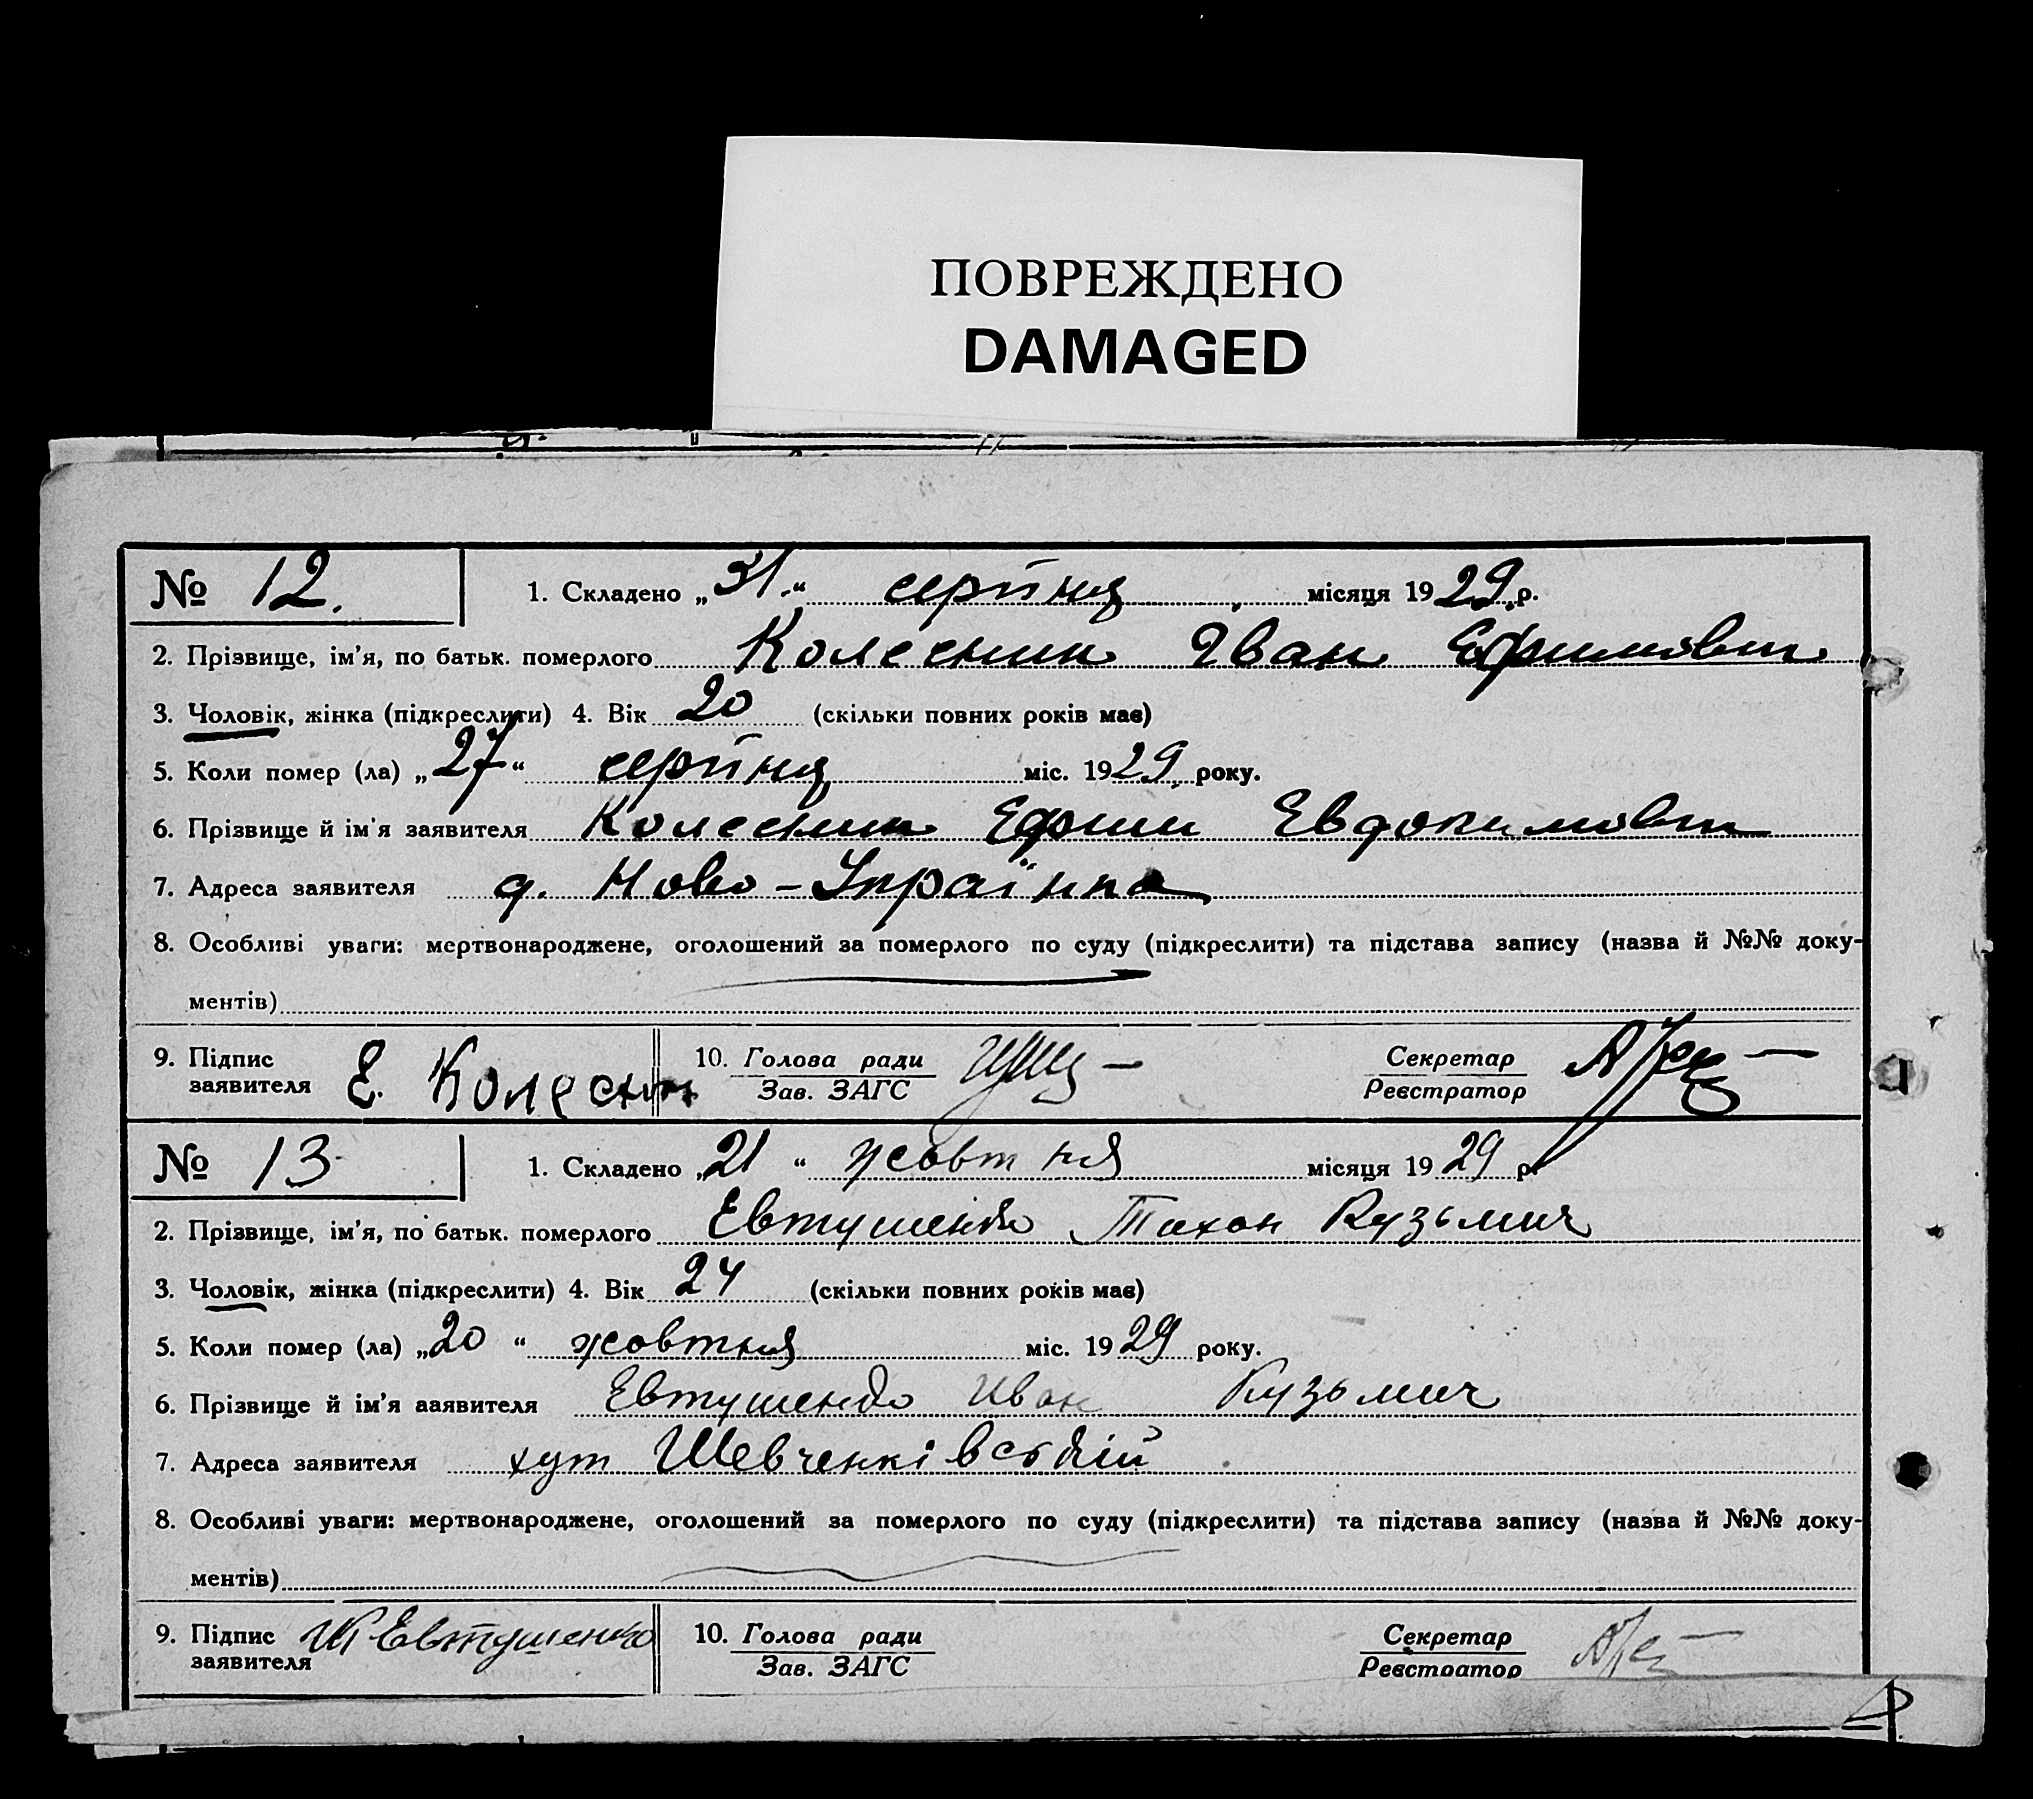 ПОВРЕЖДЕНО
DAMAGED
№ 12. 1. Складено „31.“ серпня місяця 1929 р.
2. Прізвище, ім'я, по батьк. померлого Колесник Іван Ефимович
3. Чоловік, жінка (підкреслити) 4. Вік 20 (скільки повних років має)
5. Коли помер (ла) „27“ серпня міс. 1929 року.
6. Прізвище й ім'я заявителя Колесник Ефим Евдокимович
7. Адреса заявителя д. Ново-Українка
8. Особливі уваги: мертвонароджене, оголошений за померлого по суду (підкреслити) та підстава запису (назва й №№ доку-
ментів)
9. Підпис заявителя Е. Колесник 10. Голова ради Секретар
Зав. ЗАГС Реєстратор
№ 13 1. Складено „21“ жовтня місяця 1929 р.
2. Прізвище, ім'я, по батьк. померлого Евтушенко Тихон Кузьмич
3. Чоловік, жінка (підкреслити) 4. Вік 24 (скільки повних років має)
5. Коли помер (ла) „20“ жовтня міс. 1929 року.
6. Прізвище й ім'я ааявителя Евтушенко Иван Кузьмич
7. Адреса заявителя хут Шевченківській
8. Особливі уваги: мертвонароджене, оголошений за померлого по суду (підкреслити) та підстава запису (назва й №№ доку-
ментів)
9. Підпис заявителя Евтушенко 10. Голова ради Секретар
Зав. ЗАГС Реєстратор